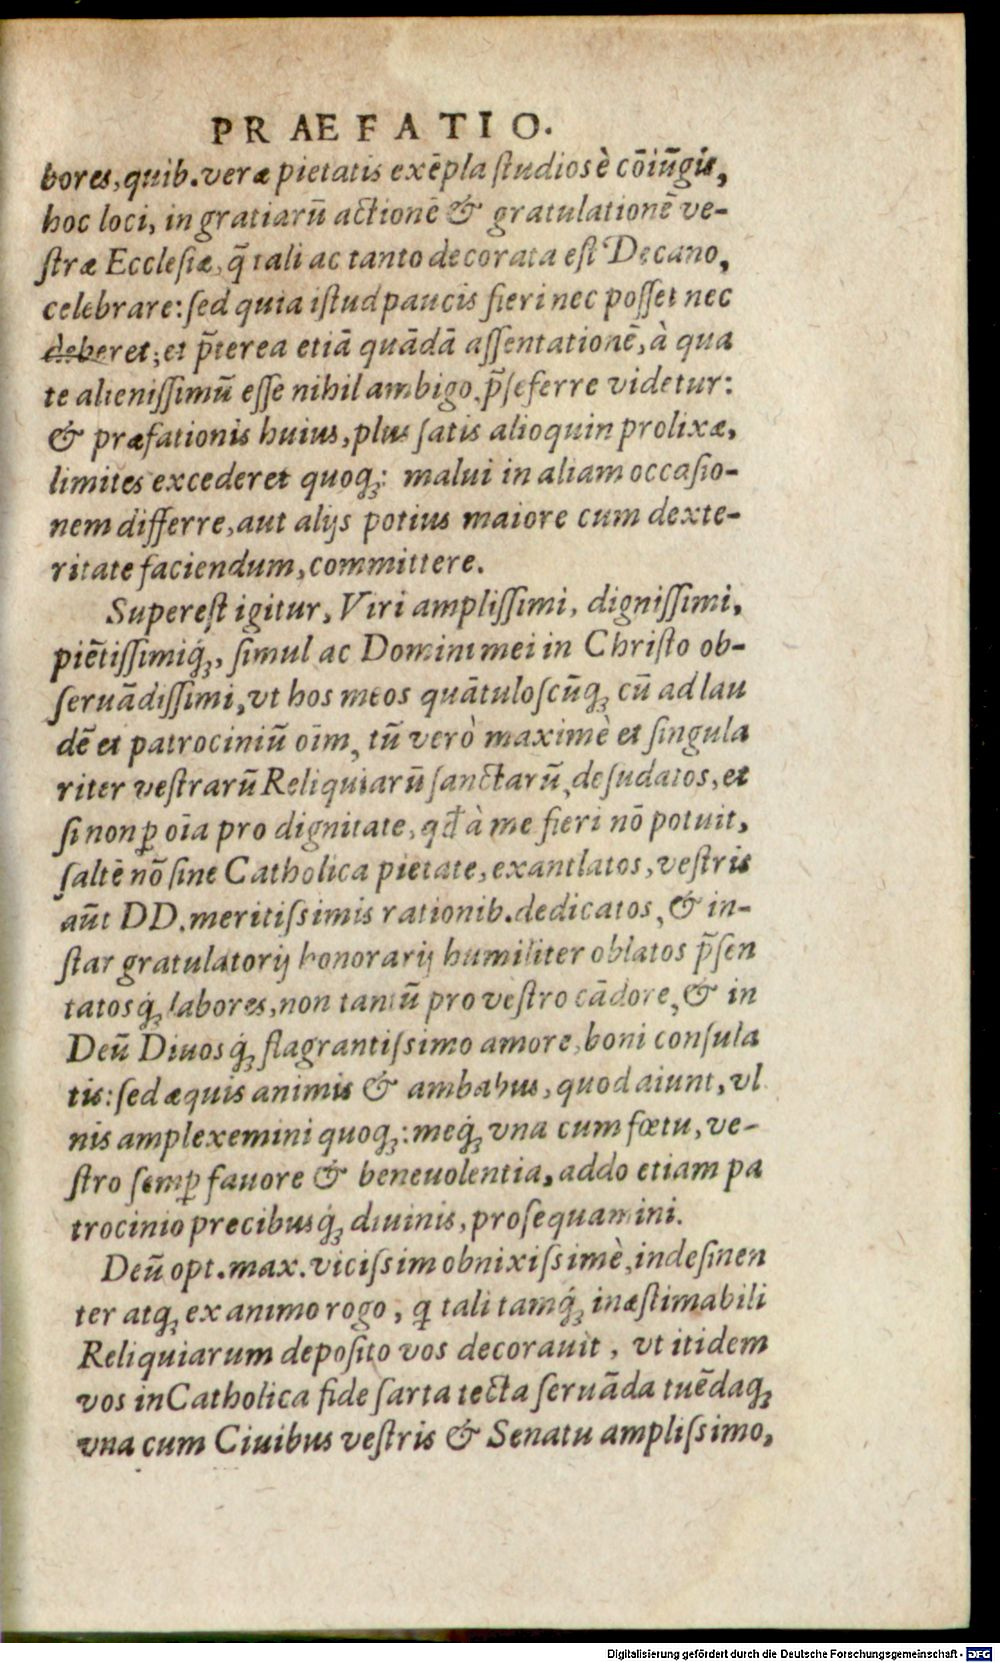 PRAEFATIO.
bores, quib. veræ pietatis exẽpla ſtudiosè cõiũgis,
hoc loci, in gratiarũ actionẽ & gratulationẽ ve-
ſtræ Eccleſiæ, q̃ tali ac tanto decorata eſt Decano,
celebrare: ſed quia iſtud paucis fieri nec poſſet nec
deberet; et p̃terea etiã quãdã aſſentationẽ, à qua
te alieniſſimũ eſſe nihil ambigo, p̃ſeferre videtur:
& præfationis huius, plus ſatis alioquin prolixæ,
limites excederet quoq́ꝫ: malui in aliam occaſio-
nem differre, aut alijs potius maiore cum dexte-
ritate faciendum, committere.
Supereſt igitur, Viri ampliſſimi, digniſſimi,
piẽtiſſimiq́ꝫ, ſimul ac Domini mei in Chriſto ob-
ſeruãdiſſimi, vt hos meos quãtuloſcũqꝫ cũ ad lau
dẽ et patrociniũ oĩm, tũ verò maximè et ſingula
riter veſtrarũ Reliquiarũ ſanctarũ, deſudatos, et
ſi non ꝑ oĩa pro dignitate, qđ à me fieri nõ potuit,
ſaltẽ nõ ſine Catholica pietate, exantlatos, veſtris
aũt DD. meritiſsimis rationib. dedicatos, & in-
ſtar gratulatorij honorarij humiliter oblatos p̃ſen
tatosq́ꝫ labores, non tantũ pro veſtro cãdore, & in
Deũ Diuosq́ꝫ flagrantiſsimo amore, boni conſula
tis: ſed æquis animis & ambabus, quod aiunt, vl
nis amplexemini quoqꝫ: meq́ꝫ vna cum fœtu, ve-
ſtro ſemꝑ fauore & beneuolentia, addo etiam pa
trocinio precibusq́ꝫ diuinis, proſequamini.
Deũ opt. max. viciſsim obnixiſsimè, indeſinen
ter atqꝫ ex animo rogo, ꝙ tali tamq́ꝫ inæſtimabili
Reliquiarum depoſito vos decorauit, vt itidem
vos in Catholica fide ſarta tecta ſeruãda tuẽdaqꝫ
vna cum Ciuibus veſtris & Senatu ampliſsimo,
Digitalisierung gefördert durch die Deutsche Forschungsgemeinschaft - DFG